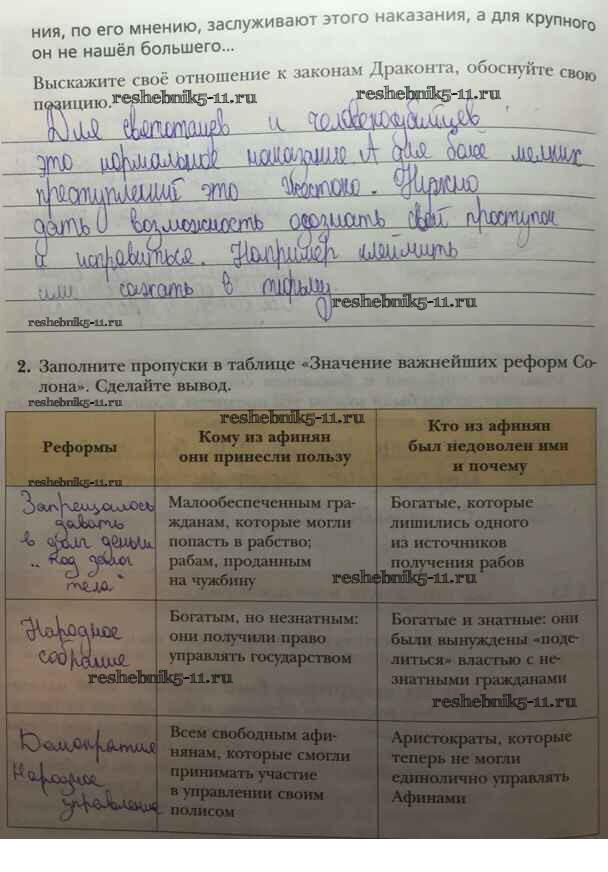 ния, по его мнению, заслуживают этого наказания, а для крупного
он не нашёл большего...
Выскажите своё отношение к законам Драконта, обоснуйте свою
позицию.
reshebnik5-11.ru
reshebnik5-11.ru
Для святотацев и человекоубийцев
это нормальное наказание. А для более мелких
преступлений это жестоко. Нужно
дать возможность осознать свой проступок
и исправиться. Например клеймить
или сажать в тюрьму.
reshebnik5-11.ru
reshebnik5-11.ru
2. Заполните пропуски в таблице «Значение важнейших реформ Со-
лона». Сделайте вывод.
reshebnik5-11.ru
reshebnik5-11.ru
Реформы
Кому из афинян
они принесли пользу
Кто из афинян
был недоволен ими
и почему
reshebnik5-11.ru
Запрещалось
давать
в долг деньги
"под залог
тела"
Малообеспеченным гра-
жданам, которые могли
попасть в рабство;
рабам, проданным
на чужбину
Богатые, которые
лишились одного
из источников
получения рабов
reshebnik5-11.ru
Народное
собрание
Богатым, но незнатным:
они получили право
управлять государством
Богатые и знатные: они
были вынуждены «поде-
литься» властью с не-
знатными гражданами
reshebnik5-11.ru
reshebnik5-11.ru
Демократия
Народное
управление
Всем свободным афи-
нянам, которые смогли
принимать участие
в управлении своим
полисом
Аристократы, которые
теперь не могли
единолично управлять
Афинами